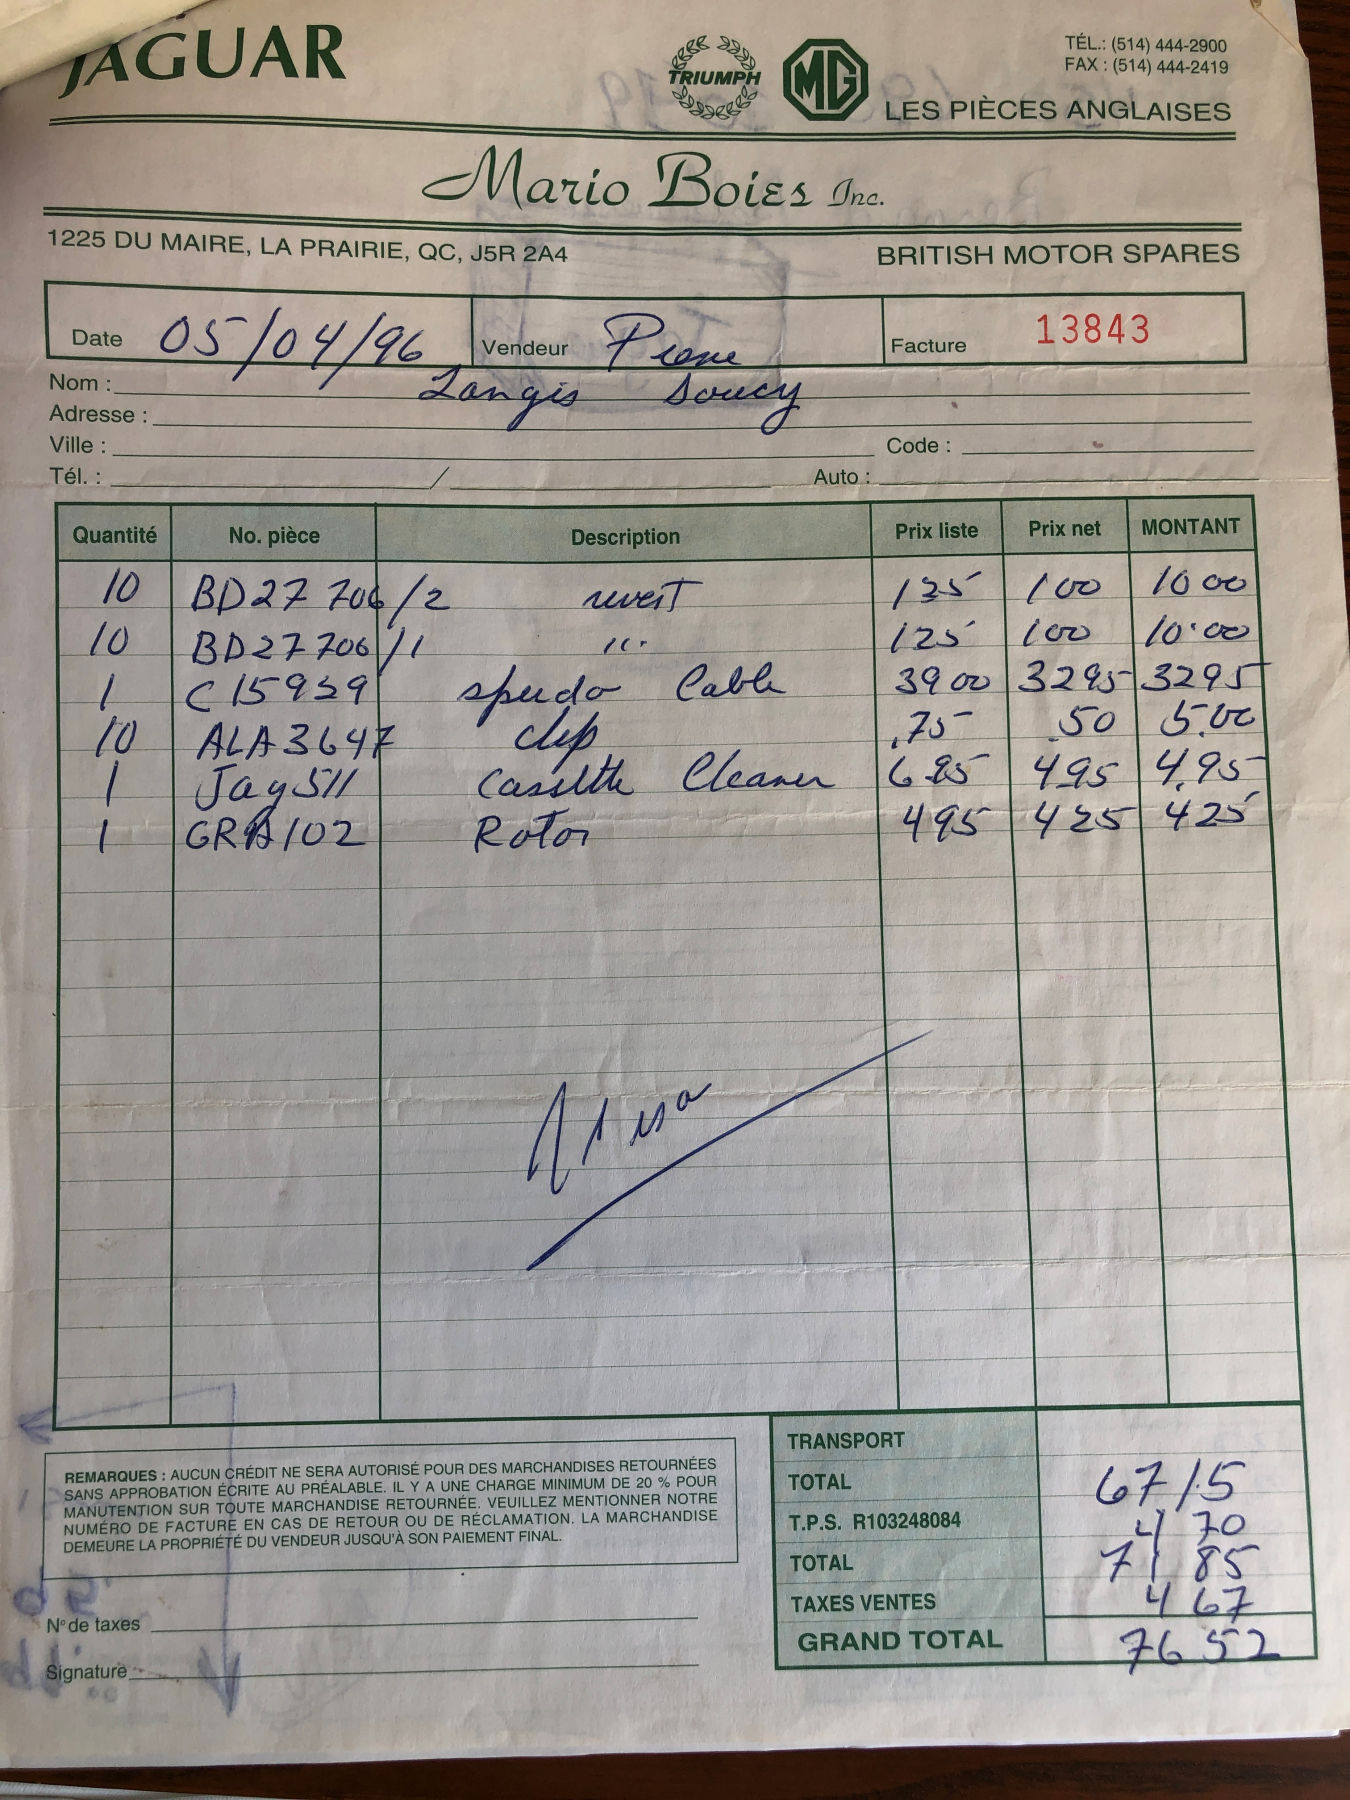 JAGUAR
TRIUMPH
MG
TÉL.: (514) 444-2900
FAX : (514) 444-2419
LES PIÈCES ANGLAISES
Mario Boies Inc.
1225 DU MAIRE, LA PRAIRIE, QC, J5R 2A4
BRITISH MOTOR SPARES
Date 05/04/96 Vendeur Pierre Facture 13843
Nom : Langis Soucy
Adresse :
Ville : Code :
Tél. : / Auto :
Quantité No. pièce Description Prix liste Prix net MONTANT
10 BD27706/2 rivet 125 100 10 00
10 BD27706/1 " 125 100 10.00
1 C15939 speedo Cable 39 00 32 95 32 95
10 ALA3647 clip .75 .50 5.00
1 Jay511 Cassette Cleaner 6.95 4.95 4.95
1 GRA102 Rotor 4 95 4 25 4 25
Visa
REMARQUES : AUCUN CRÉDIT NE SERA AUTORISÉ POUR DES MARCHANDISES RETOURNÉES
SANS APPROBATION ÉCRITE AU PRÉALABLE. IL Y A UNE CHARGE MINIMUM DE 20 % POUR
MANUTENTION SUR TOUTE MARCHANDISE RETOURNÉE. VEUILLEZ MENTIONNER NOTRE
NUMÉRO DE FACTURE EN CAS DE RETOUR OU DE RÉCLAMATION. LA MARCHANDISE
DEMEURE LA PROPRIÉTÉ DU VENDEUR JUSQU'À SON PAIEMENT FINAL.
TRANSPORT
TOTAL 67 15
T.P.S. R103248084 4 70
TOTAL 71 85
TAXES VENTES 4 67
GRAND TOTAL 76 52
No de taxes
Signature